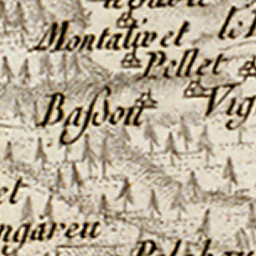 Montalivet
Pellet
Vig
Baſsou
et
ngareu